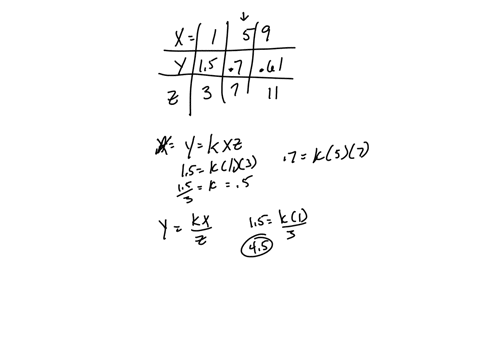 ↓
X= | 1 | 5 | 9
Y | 1.5 | .7 | .61
Z | 3 | 7 | 11
= Y = kXZ
1.5 = k(1)(3)
.7 = k(5)(7)
1.5/3 = k = .5
Y = kX/Z
1.5 = k(1)/3
4.5